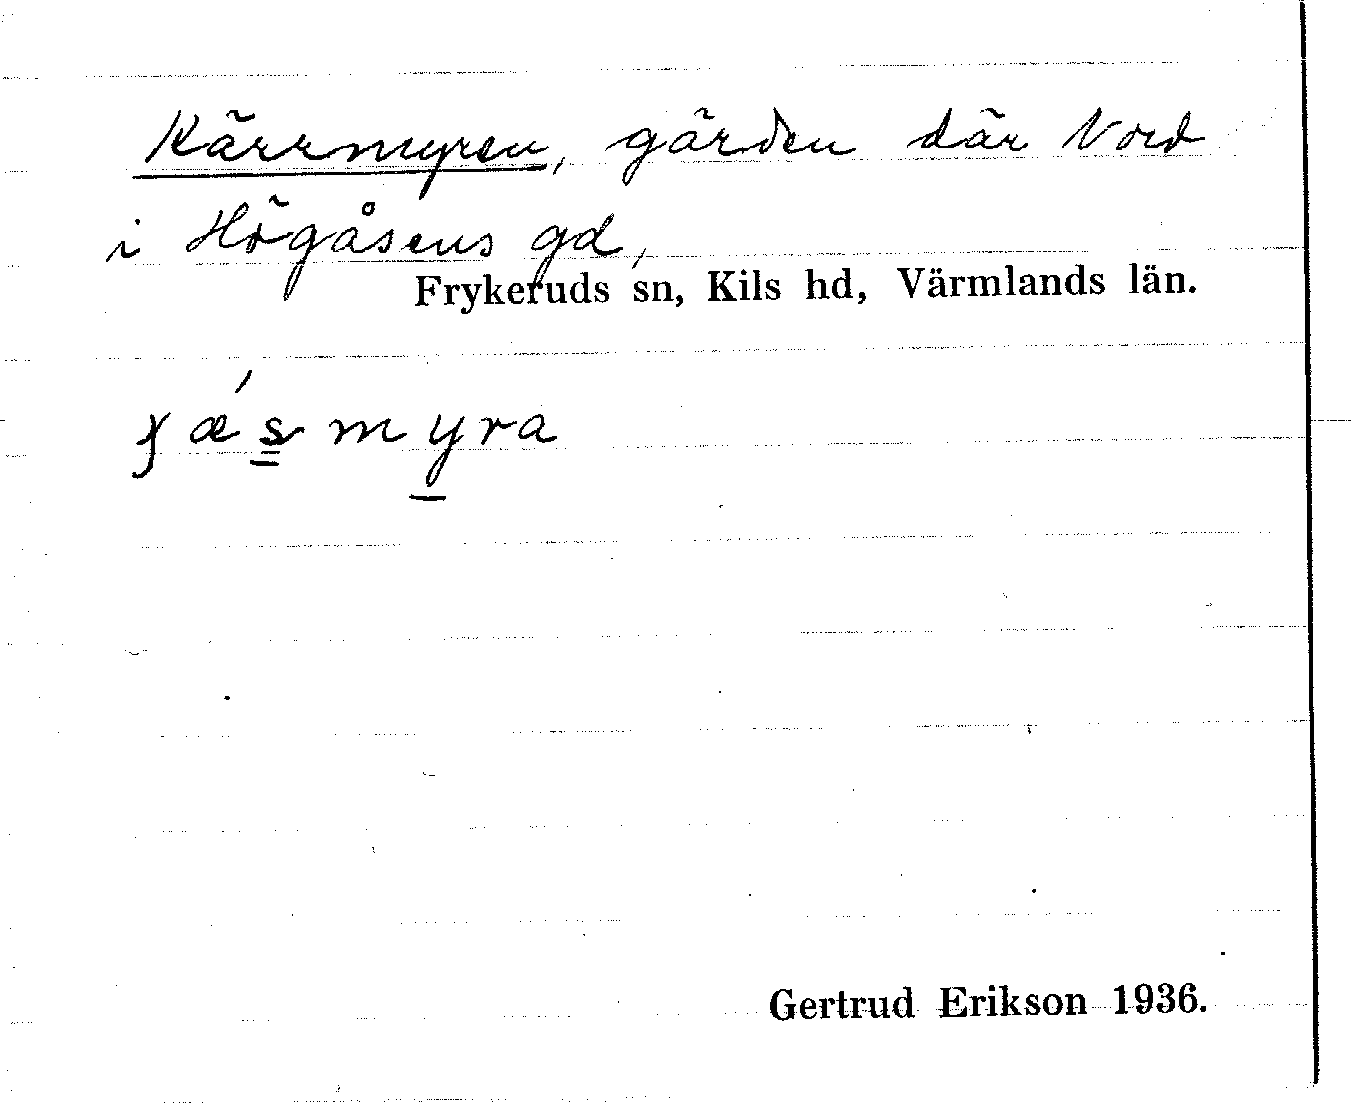 Kärrmyren, gärden där Nord
i Högåsens gd,
Frykeruds sn, Kils hd, Värmlands län.
myra
Gertrud Erikson 1936.